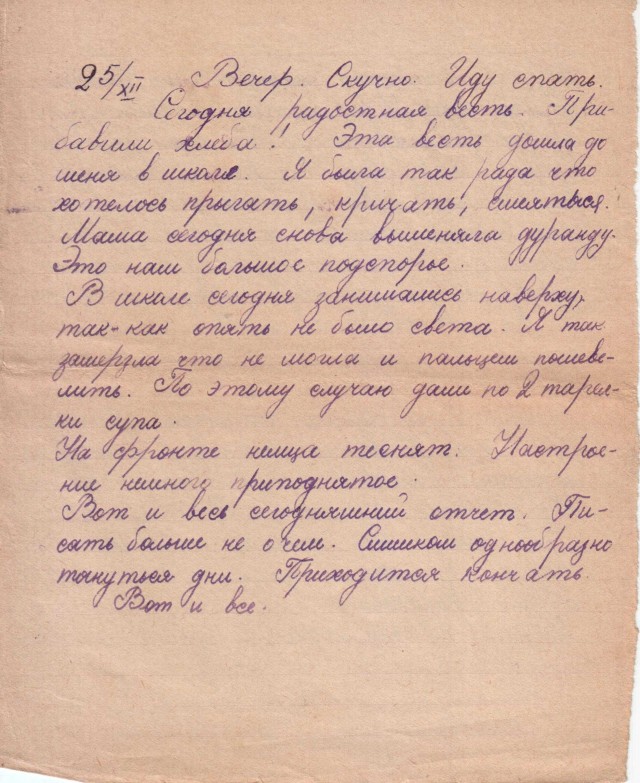 25/XII Вечер. Скучно. Иду спать.
Сегодня радостная весть. При-
бавили хлеба! Эта весть дошла до
меня в школе. Я была так рада что
хотелось прыгать, кричать, смеяться.
Маша сегодня снова выменяла дуранду.
Это наш большое подспорье.
В школе сегодня занимались наверху,
так-как опять не было света. Я так
замерзла что не могла и пальцем пошеве-
лить. По этому случаю дали по 2 тарел-
ки супа.
На фронте немца теснят. Настрое-
ние немного приподнятое.
Вот и весь сегодняшний отчет. Пи-
сать больше не о чем. Слишком однообразно
тянуться дни. Приходится кончать.
Вот и все.